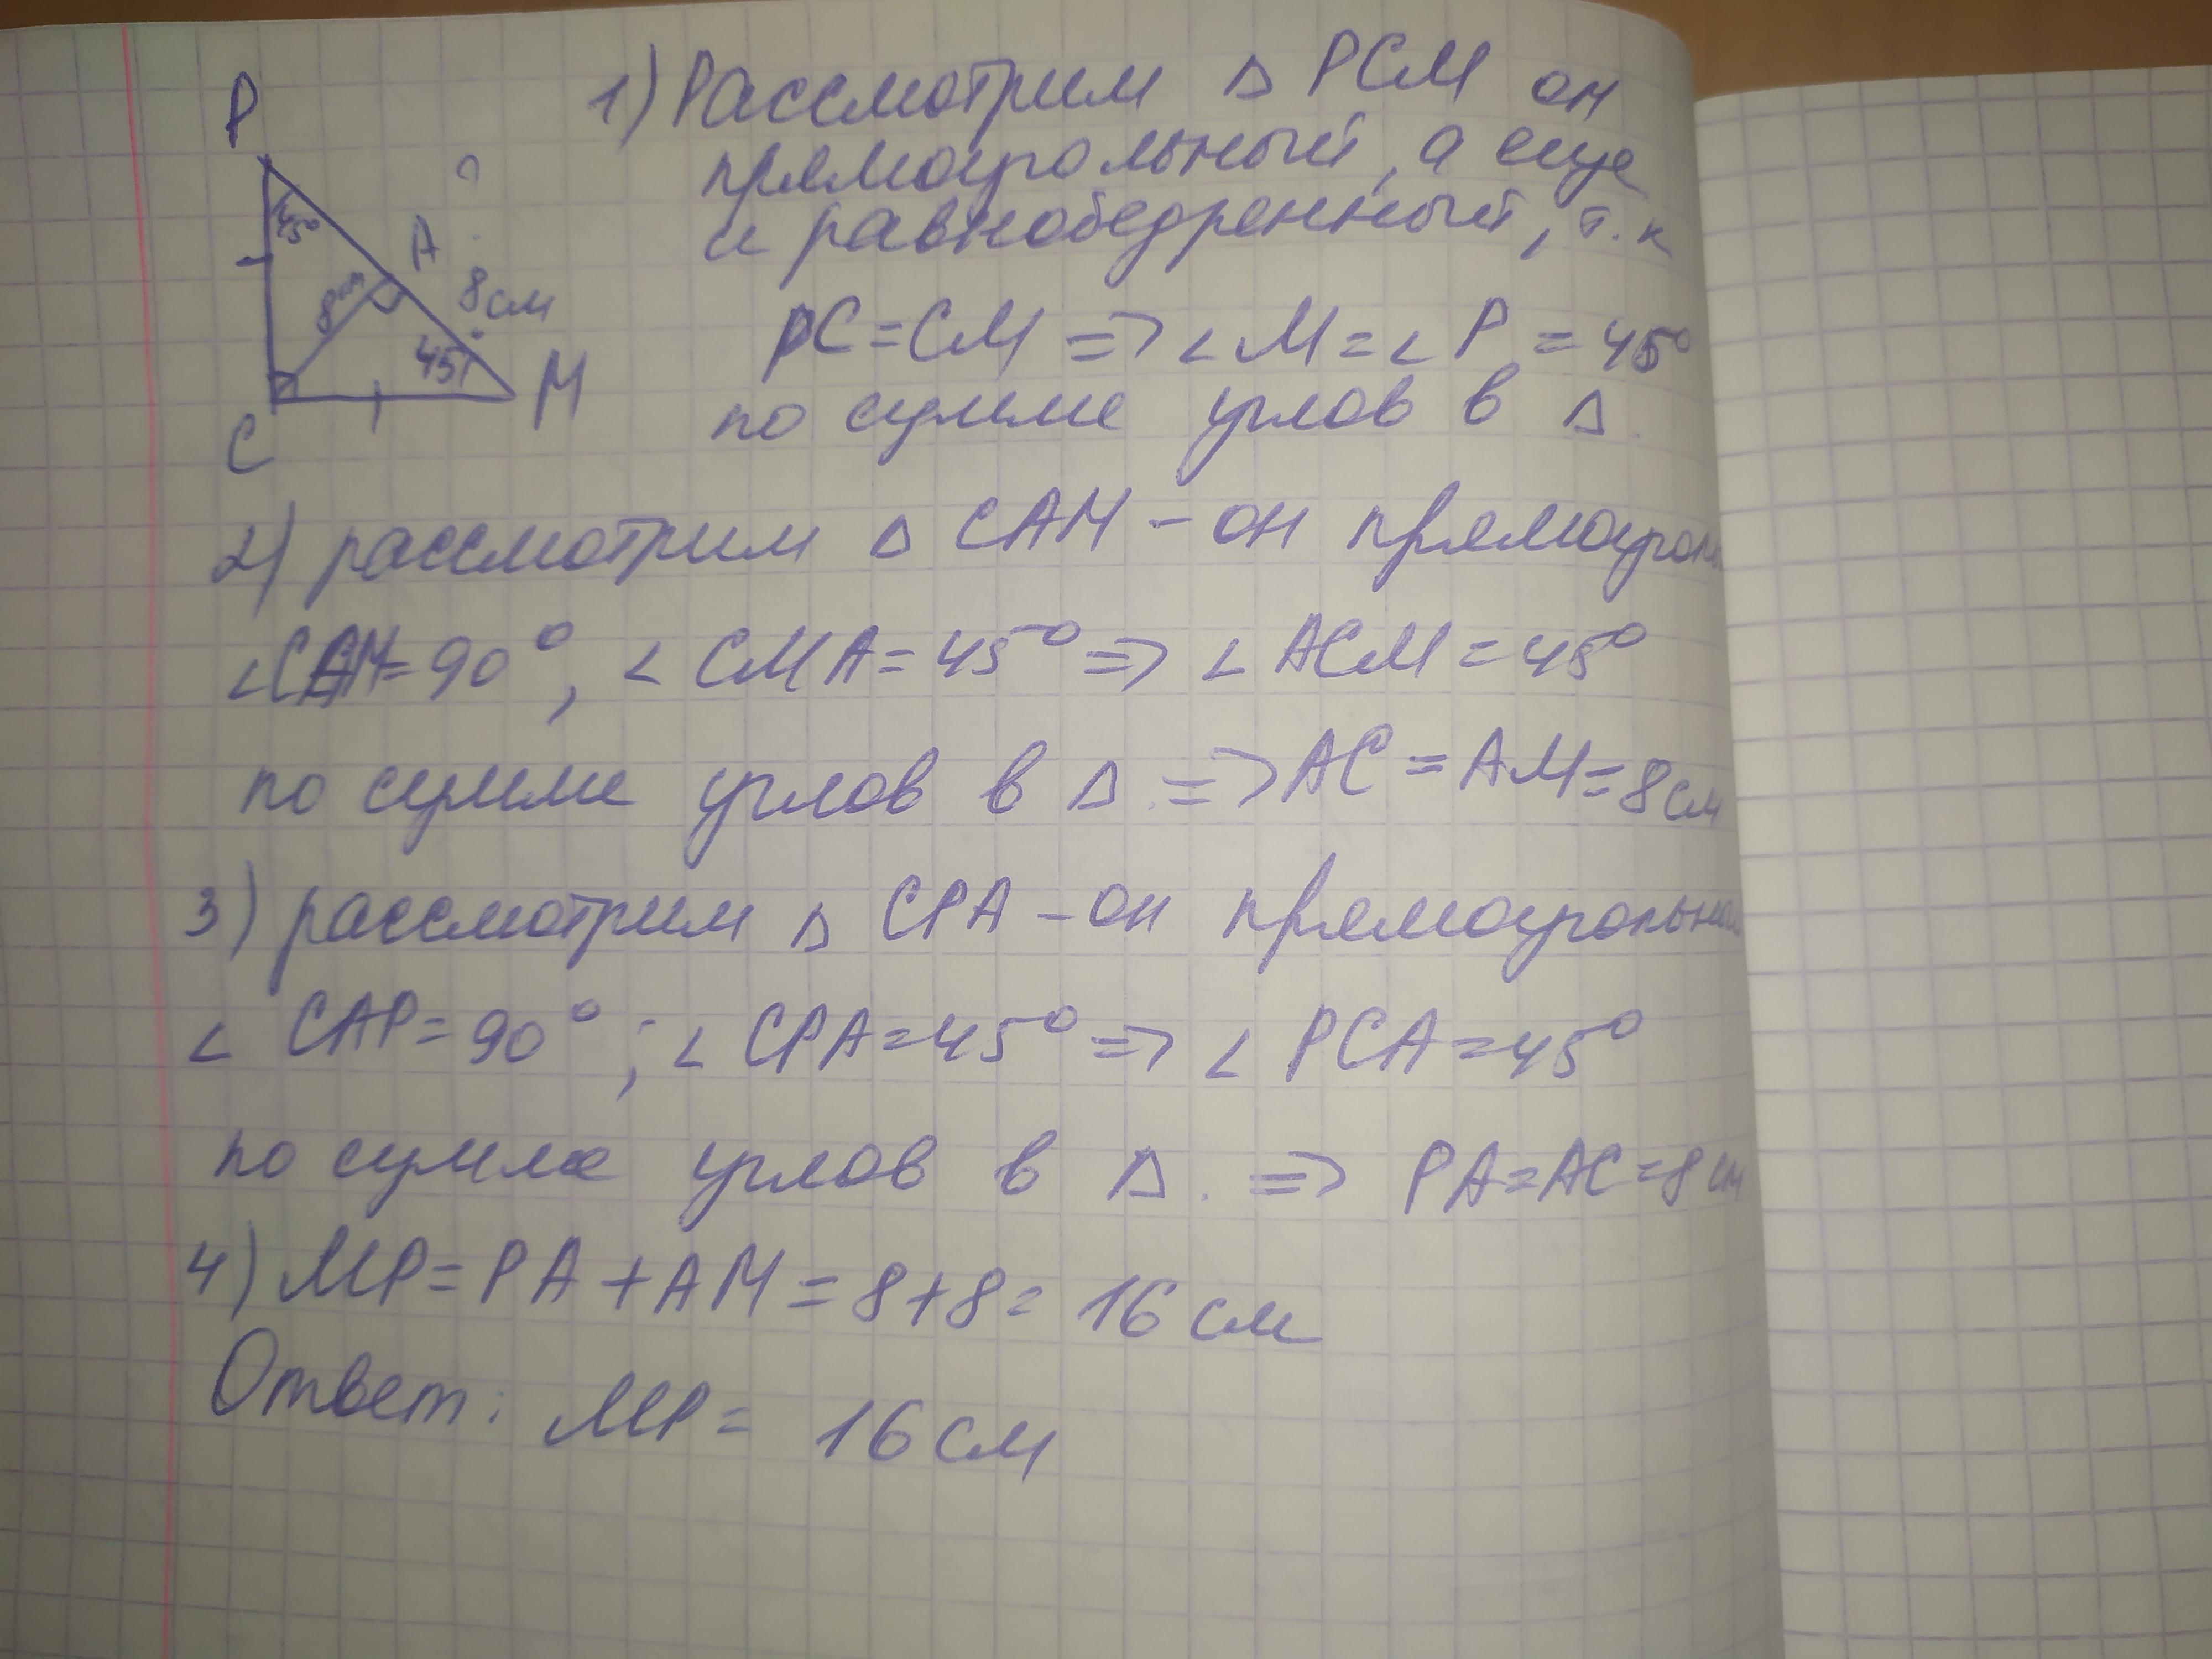 P
45°
A
8см
8см
45°
C
M
1) Рассмотрим △ PCM он
прямоугольный, а еще
и равнобедренный, т.к
PC=CM => ∠M=∠P=45°
по сумме углов в △.
2) рассмотрим △ CAM – он прямоуголь
∠CAM=90°, ∠CMA=45° => ∠ACM=45°
по сумме углов в △. => AC=AM=8см
3) рассмотрим △ CPA – он прямоугольный
∠ CAP=90°; ∠CPA=45° => ∠ PCA=45°
по сумме углов в △. => PA=AC=8см
4) MP=PA+AM=8+8=16см
Ответ: MP= 16см